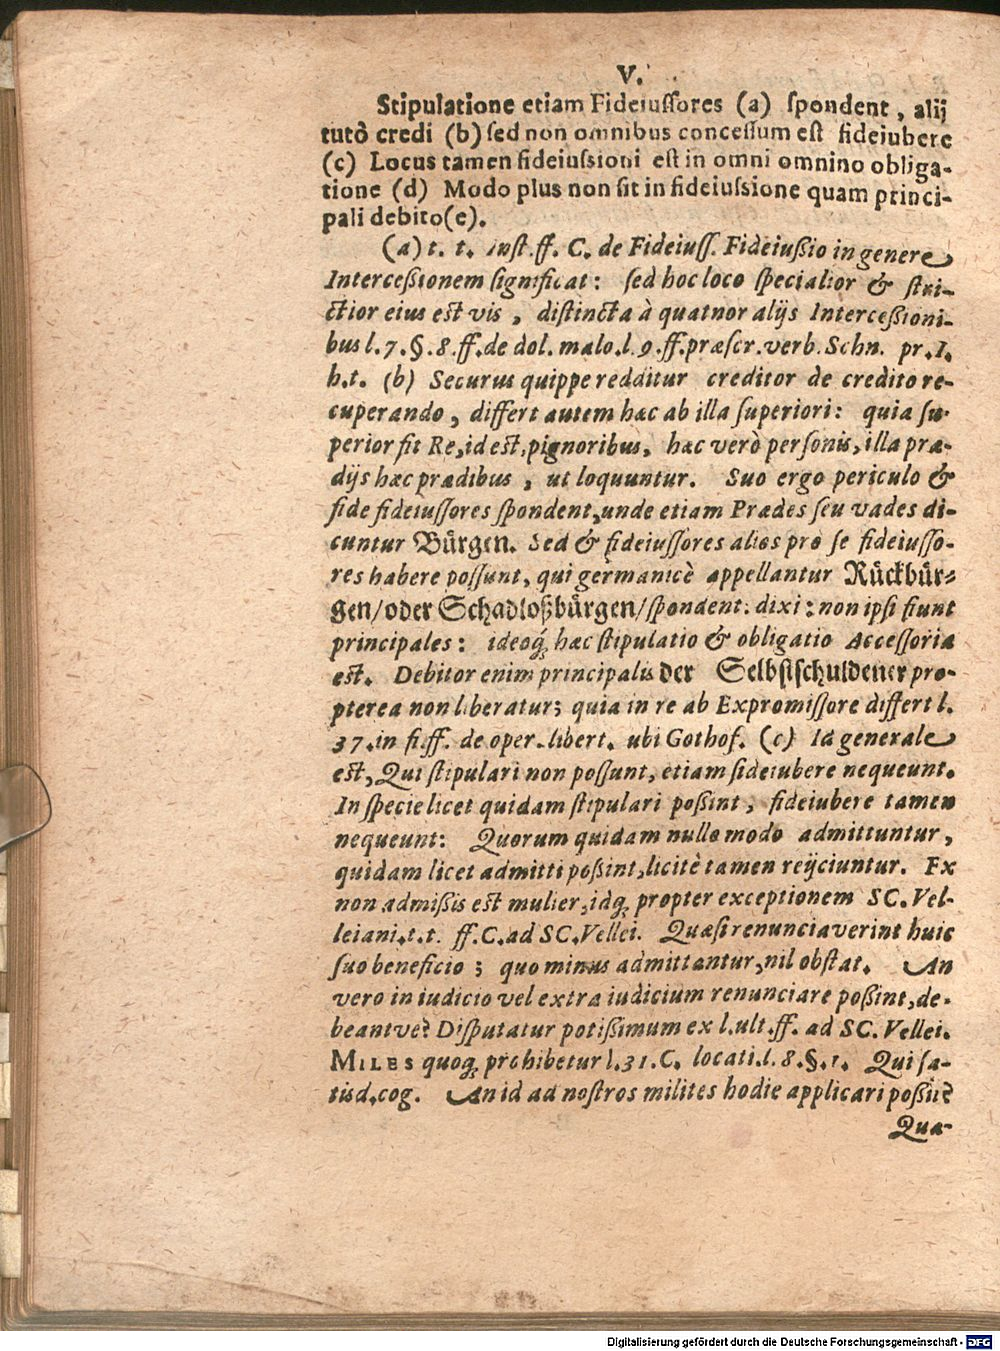 V.
Stipulatione etiam Fideiuſſores (a) ſpondent, alij
tutò credi (b) ſed non omnibus conceſſum eſt fideiubere
(c) Locus tamen fideiuſsioni eſt in omni omnino obliga-
tione (d) Modo plus non ſit in fideiuſsione quam princi-
pali debito(e).
(a) t. t. Inſt. ff. C. de Fideiuſſ. Fideiußio in genere
Interceßionem ſignificat: ſed hoc loco ſpecialior & ſtri-
ctior eius eſt vis, diſtincta à quatuor alijs Interceßioni-
bus l. 7. §. 8. ff. de dol. malo. l. 9. ff. præſcr. verb. Schn. pr. I.
h.t. (b) Securus quippe redditur creditor de credito re-
cuperando, differt autem hæc ab illa ſuperiori: quia ſu-
perior fit Re, id eſt, pignoribus, hæc verò perſonis, illa præ-
dijs hæc prædibus, ut loquuntur. Suo ergo periculo &
fide fideiuſſores ſpondent, unde etiam Prædes ſeu vades di-
cuntur Bürgen. Sed & fideiuſſores alios pro ſe fideiuſſo-
res habere poſſunt, qui germanicè appellantur Rückbür-
gen/oder Schadloßbürgen/ſpondent. dixi: non ipſi fiunt
principales: ideoq́; hæc ſtipulatio & obligatio Acceſſoria
eſt. Debitor enim principalis der Selbſtſchuldener pro-
pterea non liberatur; quia in re ab Expromiſſore differt l.
37. in fi. ff. de oper. libert. ubi Gothof. (c) Id generale
eſt, Qui ſtipulari non poſſunt, etiam fideiubere nequeunt.
In ſpecie licet quidam ſtipulari poßint, fideiubere tamen
nequeunt: Quorum quidam nullo modo admittuntur,
quidam licet admitti poßint, licitè tamen reijciuntur. Ex
non admißis eſt mulier, idq́; propter exceptionem SC. Vel-
leiani. t. t. ff. C. ad SC. Vellei. Quæſi renunciaverint huic
ſuo beneficio; quo minus admittantur, nil obſtat. An
vero in iudicio vel extra iudicium renunciare poßint, de-
beantve? Diſputatur potißimum ex l. ult. ff. ad SC. Vellei.
MILES quoq́; prohibetur l. 31. C. locati. l. 8. §. 1. Qui ſa-
tisd. cog. An id ad noſtros milites hodie applicari poßit?
Qua-
Digitalisierung gefördert durch die Deutsche Forschungsgemeinschaft - DFG